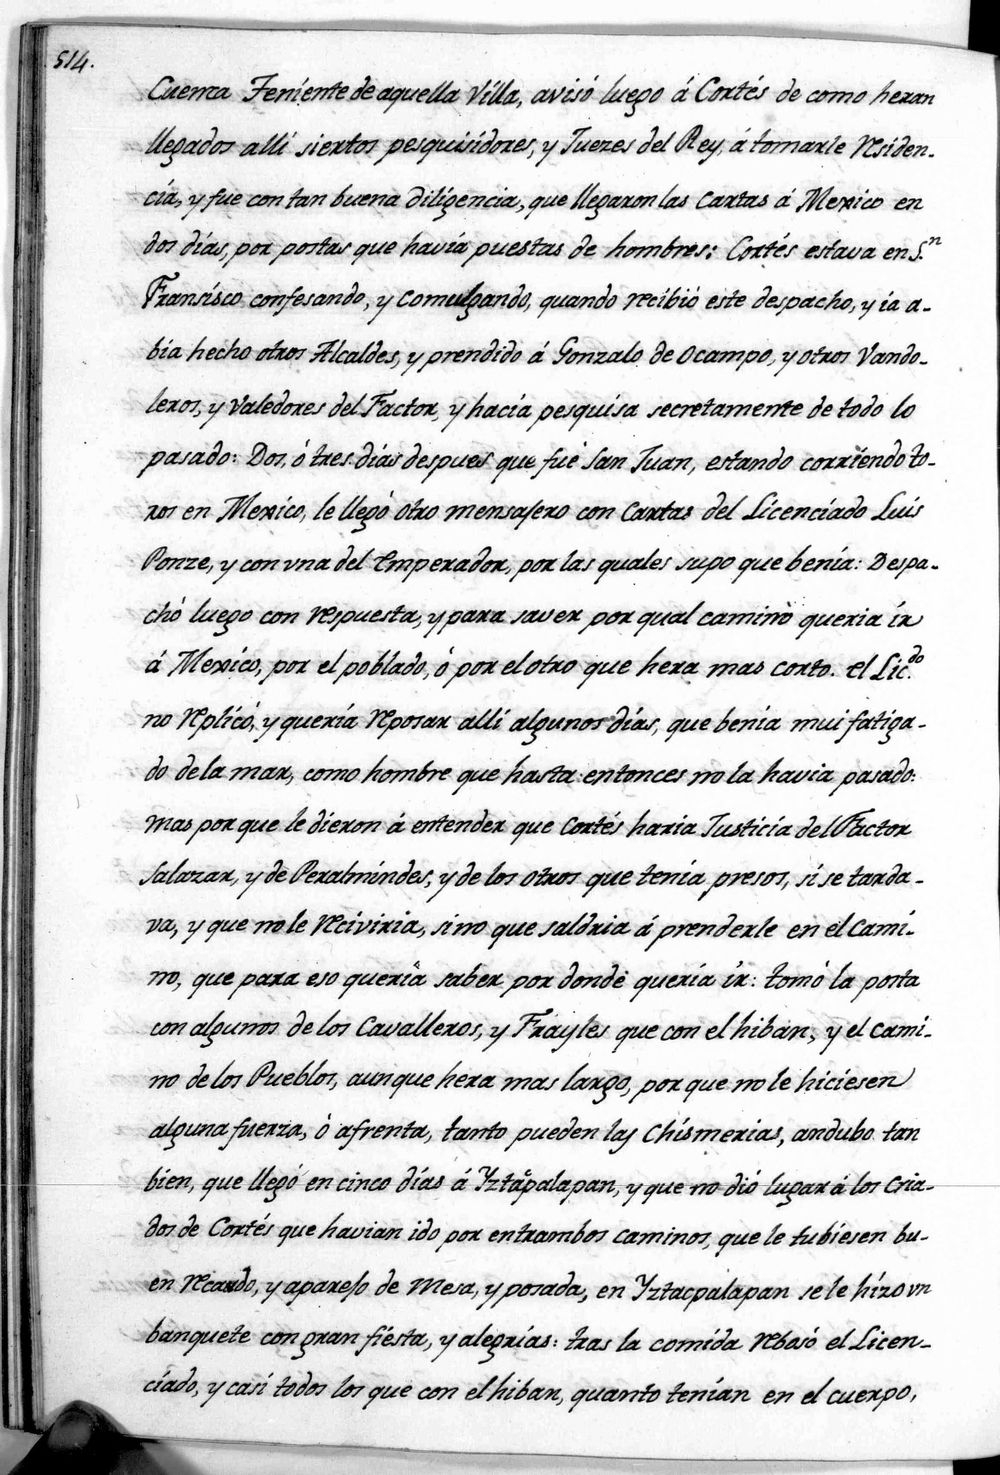 514.
Cuenca Teniente de aquella Villa, avisó luego á Cortés de como heran
llegados alli siertos pesquisidores, y Juezes del Rey, á tomarle Residen-
cia, y fue con tan buena diligencia, que llegaron las Cartas á Mexico en
dos días, por postas que havía puestas de hombres: Cortés estava en S.n
Fransisco confesando, y comulgando, quando recibió este despacho, y ia a-
bía hecho otros Alcaldes, y prendido á Gonzalo de Ocampo, y otros Vando-
leros, y Valedores del Factor, y hacía pesquisa secretamente de todo lo
pasado: Dos, ó tres días despues que fué San Juan, estando corriendo to-
ros en Mexico, le llegò otro mensajero con Cartas del Licenciado Luis
Ponze, y con vna del Emperador, por las quales supo que benía: Despa-
chò luego con respuesta, y para saver por qual camino queria ír
á Mexico, por el poblado, ò por el otro que hera mas corto. el Lic.do
no Replicó, y quería Reposar allí algunos días, que benia mui fatiga-
do de la mar, como hombre que hasta entonces no la havia pasado:
mas porque le dieron á entender que Cortés haria Justicia del Factor
Salazar, y de Peralmíndes, y de los otros que tenía presos, si se tarda-
va, y que no le Reciviria, sino que saldria á prenderle en el Cami-
no, que para eso quería saber por donde quería ir: tomó la posta
con algunos de los Cavalleros, y Frayles que con el hiban, y el cami-
no de los Pueblos, aunque hera mas largo, por que no le hiciesen
alguna fuerza, ò afrenta, tanto pueden las Chismerias, andubo tan
bien, que llegó en cinco días á Yztapalapan, y que no dió lugar á los Cria-
dos de Cortés que havian ido por entrambos caminos, que le tubiesen bu-
en Recardo, y aparejo de mesa, y posada, en Yztacpalapan se le hízo vn
banquete con gran fiésta, y alegrías: tras la comída Rebosó el Licen-
cíado, y casi todos los que con el hiban, quanto tenían en el cuerpo,